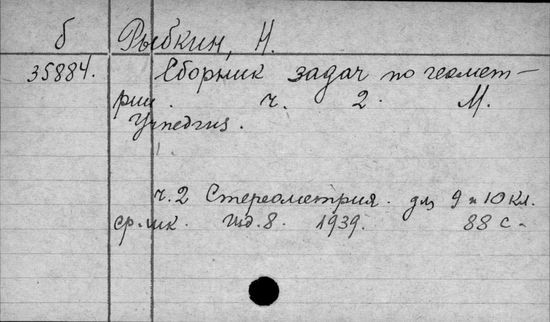 б Рыбкин, Н.
35884. Сборник задач по геомет-
рии. ч. 2. М.
Учпедгиз.
ч. 2 Стереометрия. для 9 и 10 кл.
ср. шк. Изд. 8. 1939. 88 с.